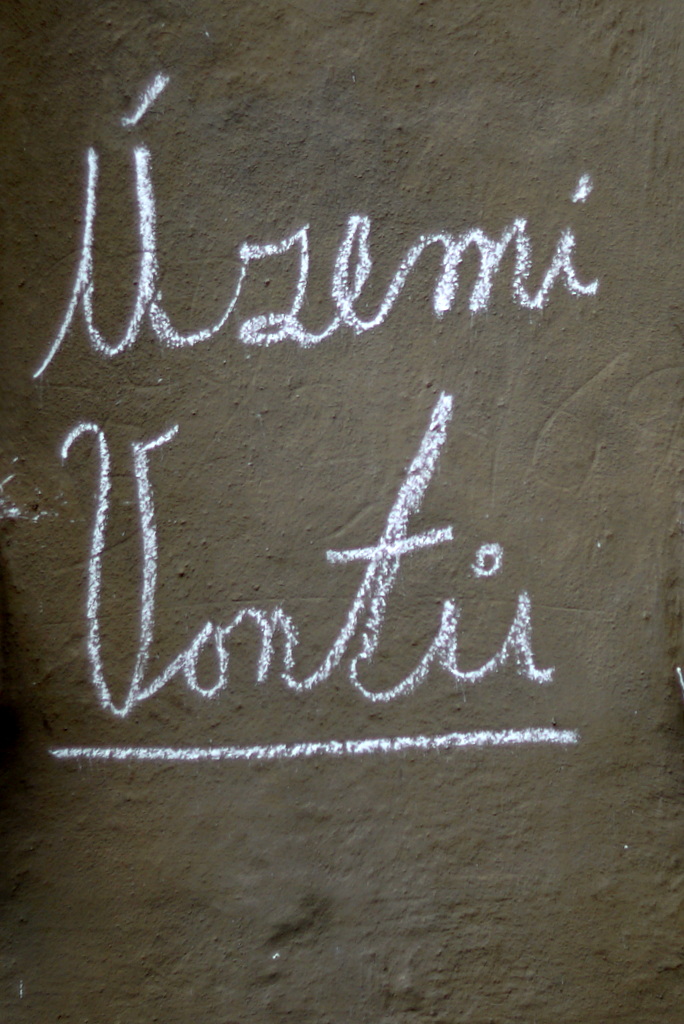 Území
Vontů